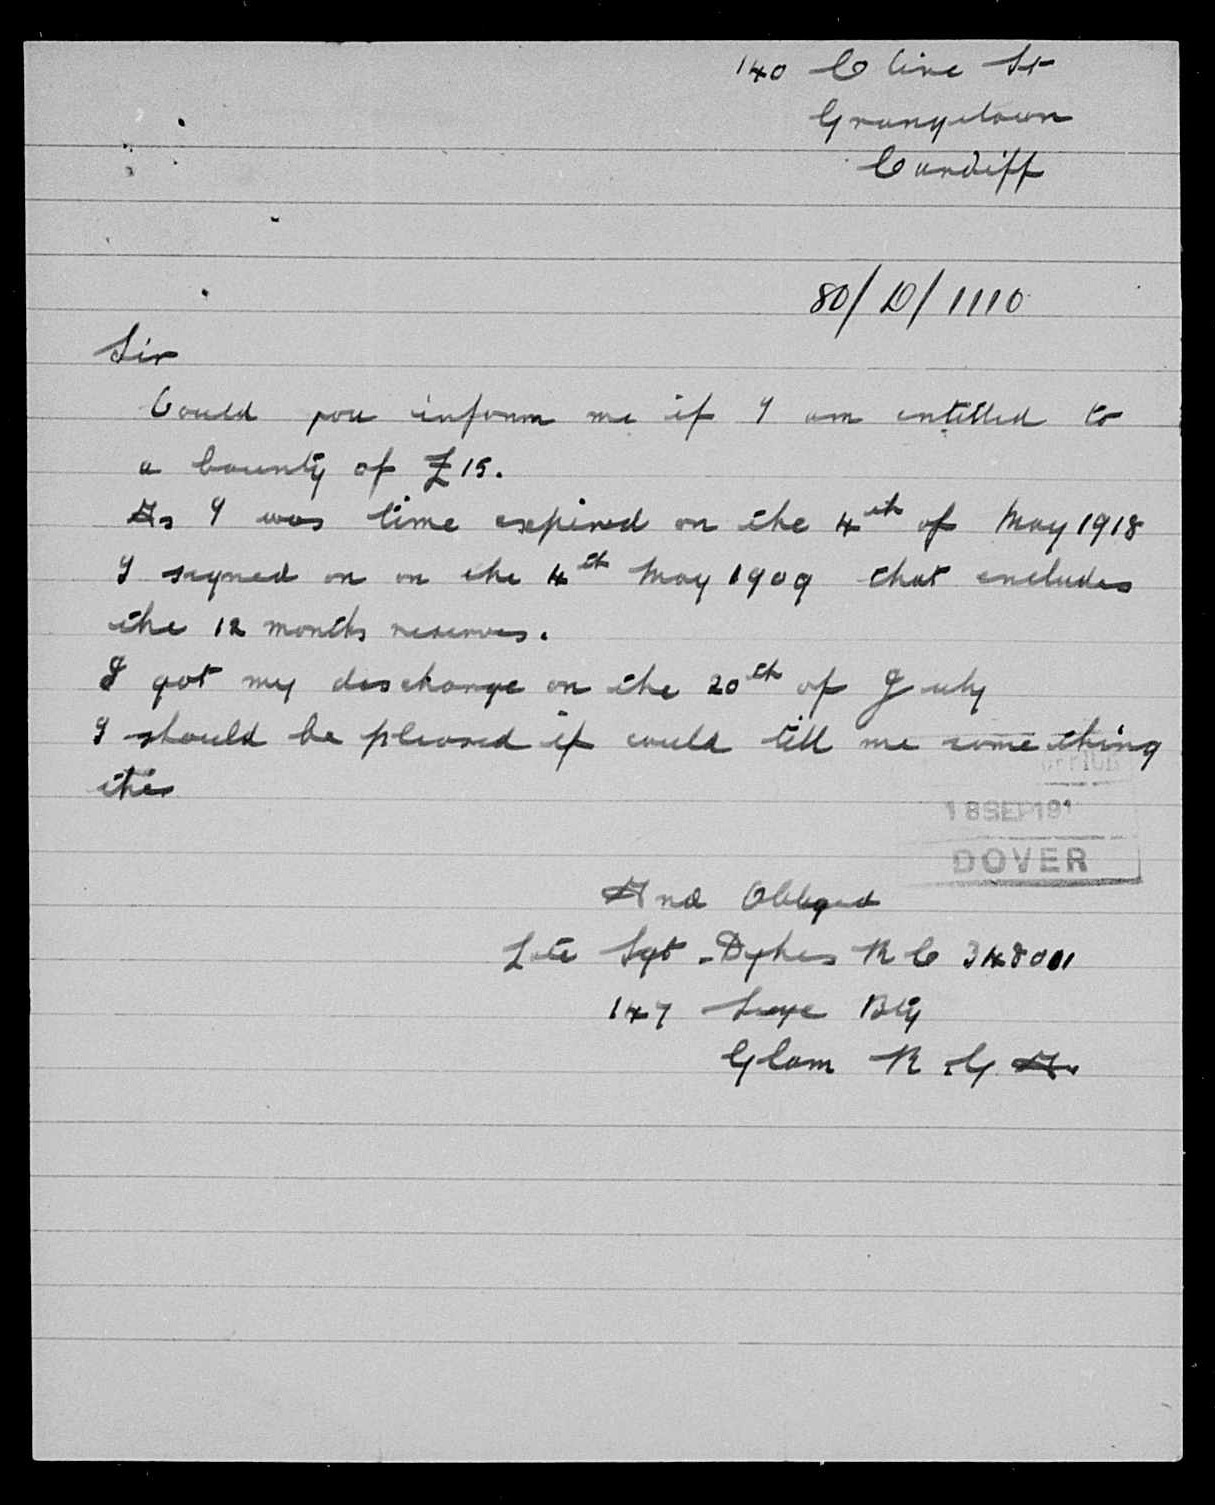 140 Clive St
Grangetown
Cardiff
80/D/1110
Sir
Could you inform me if I am entitled to
a bounty of £15.
As I was time expired on the 4th of May 1918
I signed on on the 4th May 1909 that includes
the 12 months reserves.
I got my discharge on the 20th of July
I should be pleased if could till me some thing
this
OFFICE
18 SEP 191
DOVER
And Obliged
Late Sgt Dykes R C 348011
147 Seige Bty
Glam R.G.A.